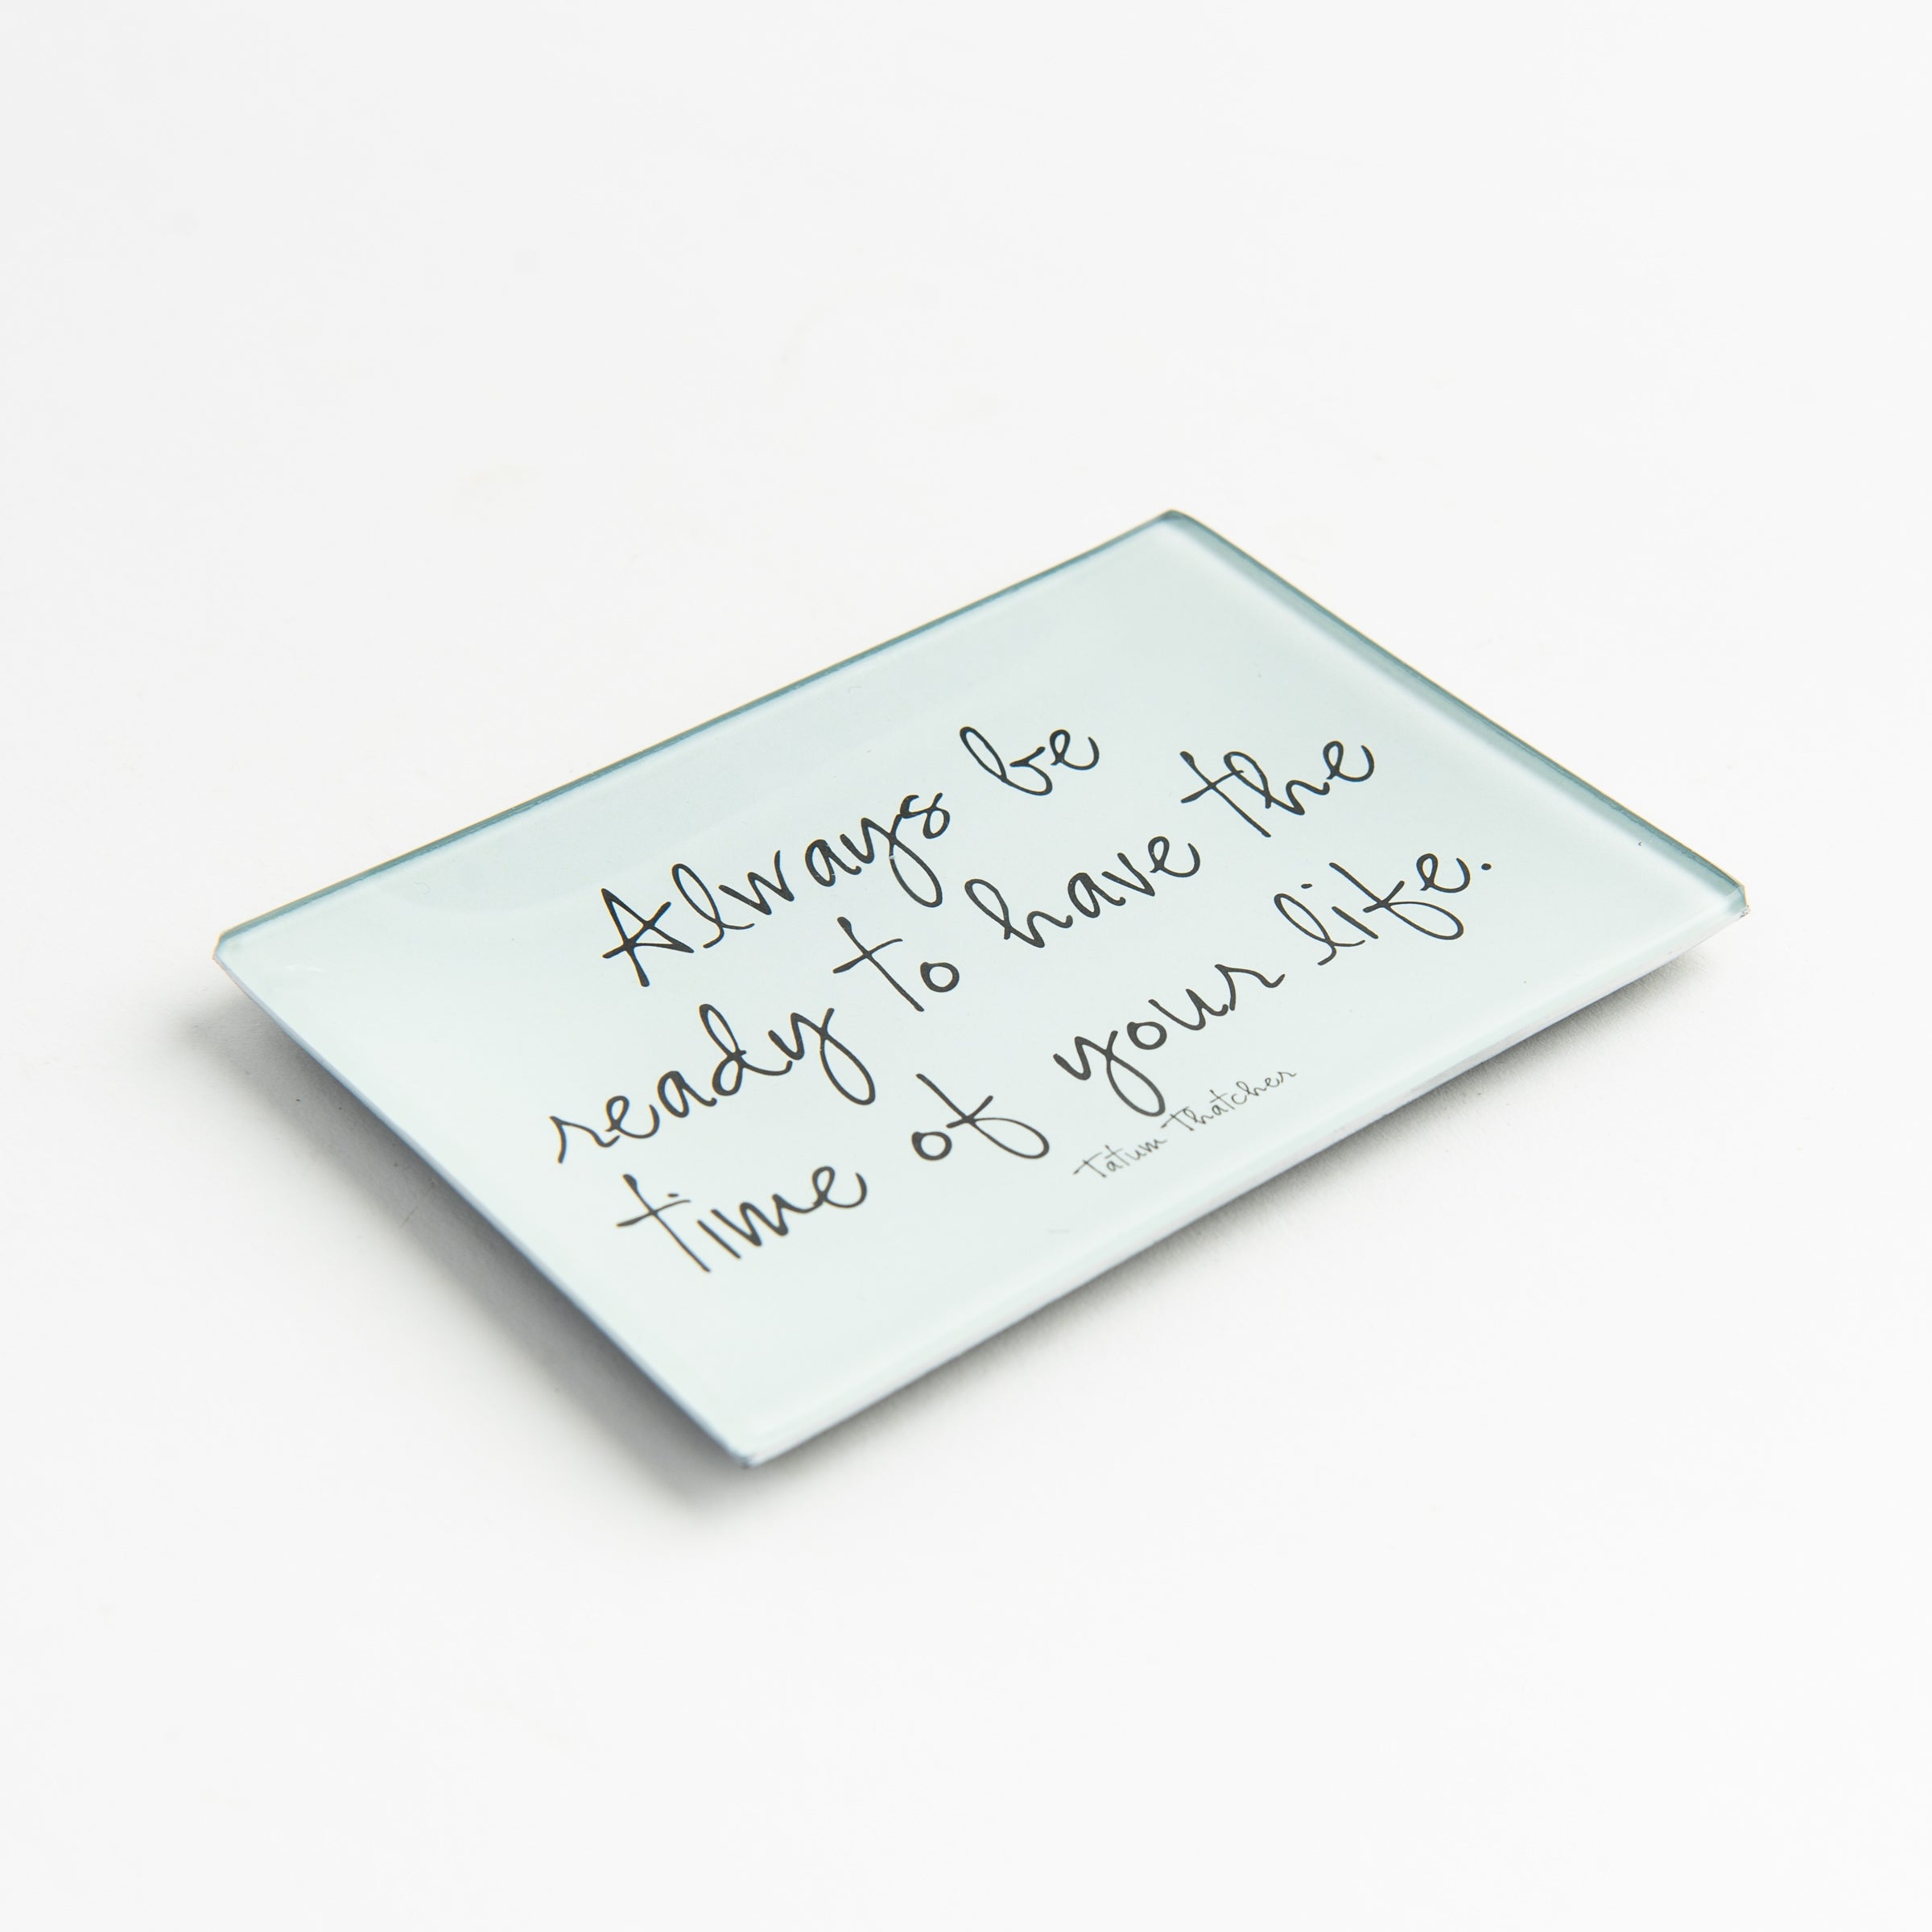 Always be
ready to have the
time of your life.
Tatum Thatcher